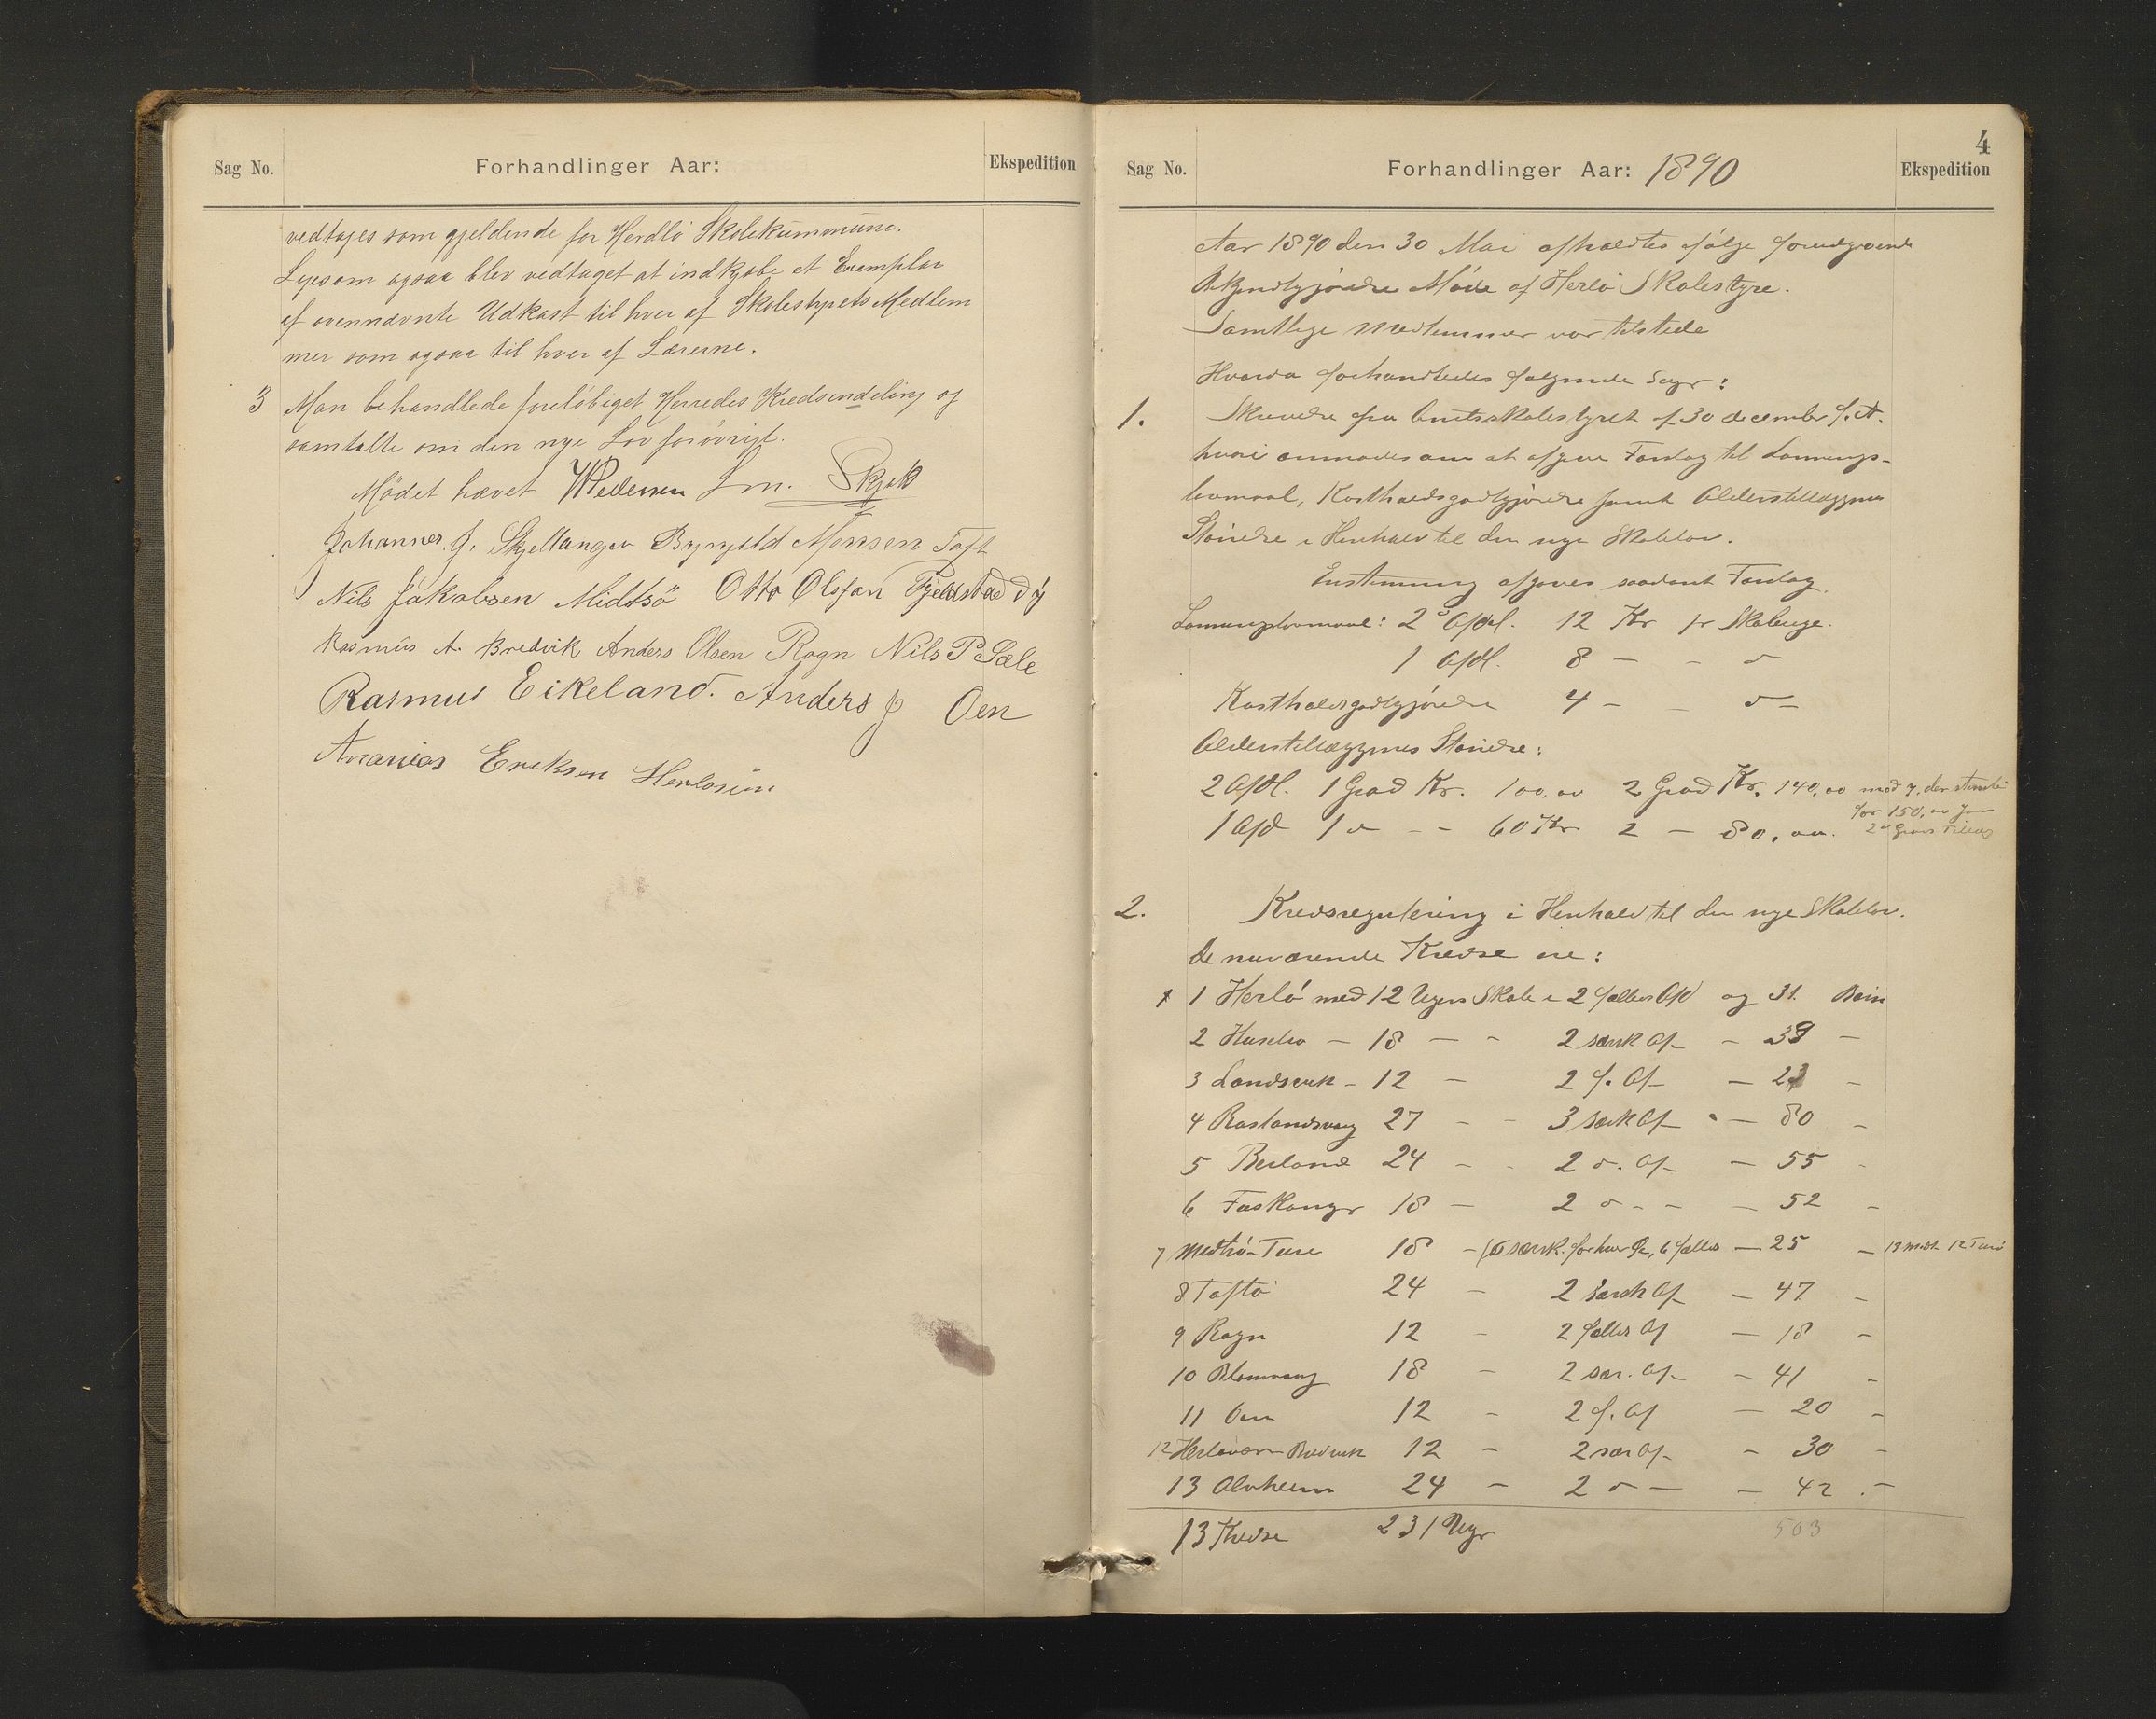 Sag No. Forhandlinger Aar: Ekspedition
vedtages som gjeldende for Herdlö Skolekummune.
Ligesom ogsaa blev vedtaget at indkjøbe et Exemplar
af ovennævnte Udkast til hver af Skolestyrets Medlem
mer som ogsaa til hver af Lærerne.
3 Man behandlede foreløbiget Herredes Kredsinddeling og
samtalte om den nye Lov forøvrigt.
Mødet hævet WPedersen Skjak
Johannes J. Skjellanger Brynjeld Monsen Toft
Nils Jakobsen Midtsö Otto Olsson Fjeldstad
Rasmus A. Bredvik Anders Olsen Rogn Nils P Sæle
Rasmus Eikeland. Anders J Oen
Ananias Eriksen
4
Sag No. Forhandlinger Aar: 1890 Ekspedition
Aar 1890 den 30 Mai afholdtes ifølge forudgaaende
Bekjendtgjørelse Møde af Herlö Skolestyre.
Samtlige Medlemmer var tilstede
Hvorda forhandledes følgende Sager:
1. Skrivelse fra Amtsskolestyret af 30 december f. A.
hvori anmodes om at afgive Forslag til Lønnings-
lovmaal, Kostholdsgodtgjørelse samt Alderstillæggenes
Størrelse i Henhold til den nye Skolelov.
Enstemmig afgives saadant Forslag.
2 Afdl. 12 Kr pr Skoleuge.
1 Afdl. 8 — - "
Kostholdsgodtgjørelse 4 - - "-
Alderstillæggenes Størrelse:
2 Afdl. 1 Grad Kr. 100,00 2 Grad Kr. 140,00
for 150,00
1 Afd 1 " - - 60 Kr 2 — 80,00. 2den Grads Tillæg
2. Kredsregulering i Henhold til den nye Skolelov.
De nuværende Kredse ere:
1 Herlö med 12 Ugers Skole i 2 fælles Afd og 31. Børn
2 Husebø — 18 — - 2 særsk Af — - 39 —
3 Landsvik - 12 — 2 f. Af — - 23 —
4 27 - - 3 særk Af - — 80 —
5 Berland 24 - - 2 ". Af — 55 -
6 Foskanger 18 — 2 " - - — 52 -
7 Midtsö-Turø 18 - 6 særsk. for hver Ø, 6 fælles — 25 — 13 Midt. 12 Turö
8 Toftö 24 - 2 Særsk Af — - 47 -
9 Rogn 12 - 2 fælles Af — 18 -
10 Blomvaag 18 - 2 sær. Af — - 41 -
11 Oen 12 - 2 f. Af — 20 -
12 Herløvær-Bredvik 12 - 2 sær Af - - 30 -
13 Alvheim 24 - 2 " — - 42 . -
13 Kredse 231 Uger 503